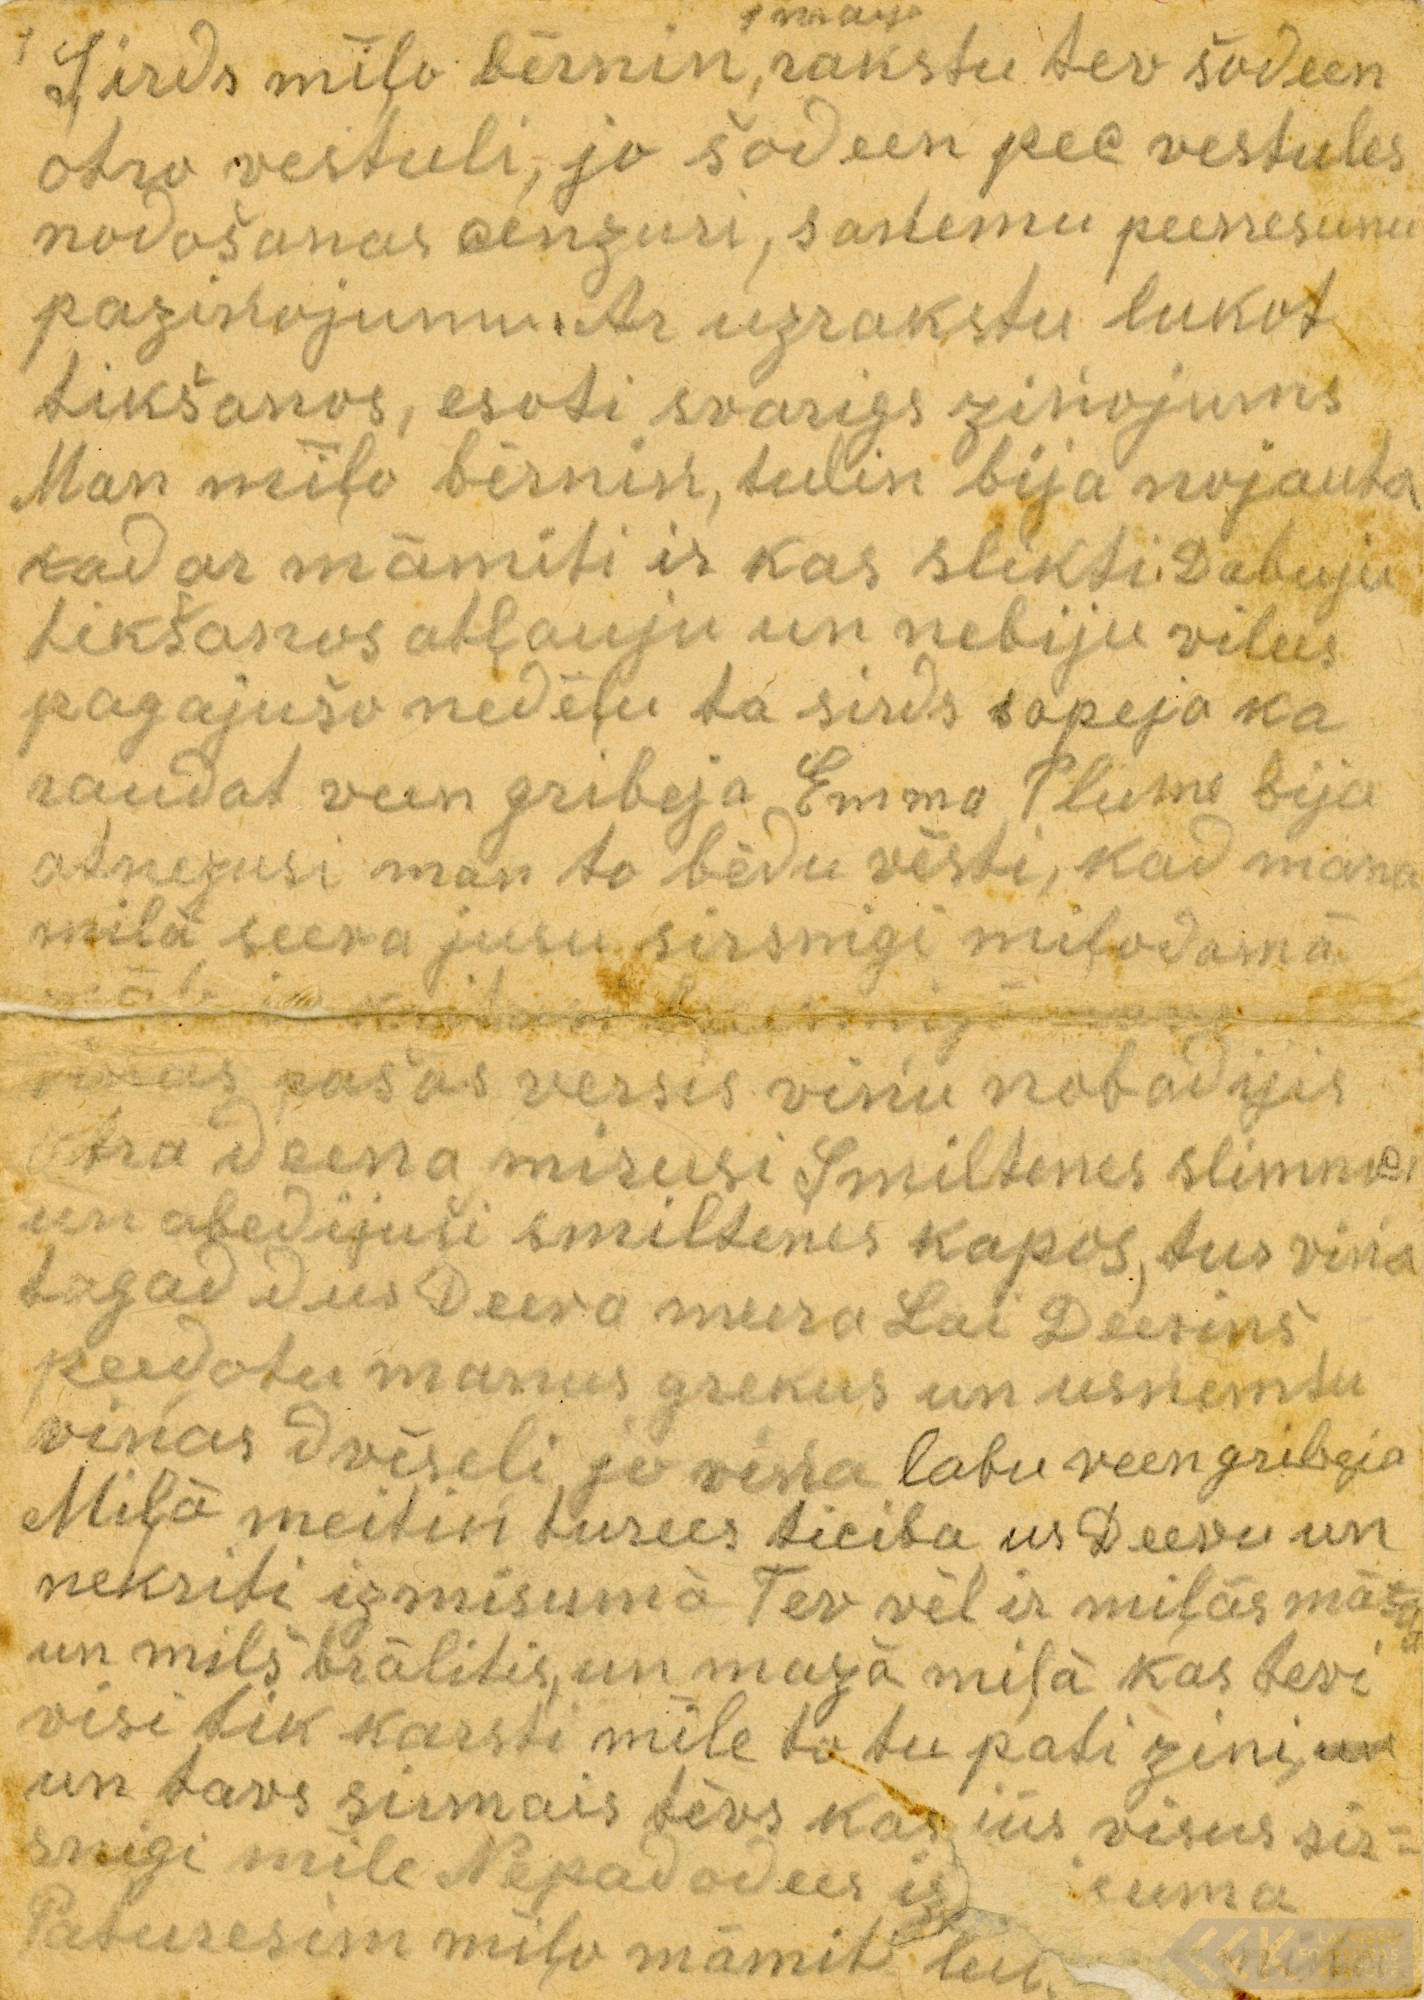 1 maijs
Sirds mīļo bērniņ, rakstu tev šodeen
otro vestuli, jo šodeen pec vestules
nodošanas cenzuri, saņemu peenesumu
paziņojumu. Ar uzrakstu lukot
tikšanos, esoti svarigs ziņojums
Man mīļo bērniņ, tuliņ bija nojauta
kad ar māmiti ir kas slikti. Dabuju
tikšanos atļauju un nebiju vilees
pagajušo nedēļu ta sirds sapeja ka
raudat veen gribeja Emma Plume bija
atnezusi man to bēdu vēsti, kad mana
milā seeva jusu sirsnigi miļodamā
viņas pašas versis viņu nobadijis
Otra deena mirusi Smiltenes slimn
un abedijuši smiltenes kapos, tus viņa
tagad dus Deeva meera Lai Deeviņš
peedotu manus grekus un usņemtu
viņas dvēseli jo viņa labu veen gribeja
Miļā meitiņ turees ticiba us Deevu un
nekriti izmisumā Tev vēl ir miļās
un milš brālitis, un mazā miļā kas tevi
visi tik karsti mīle to tu pati zini,
un tavs sirmais tēvs kas jūs visus sir=
snigi mīle Nepadodees iz
Paturesim mīļo māmit